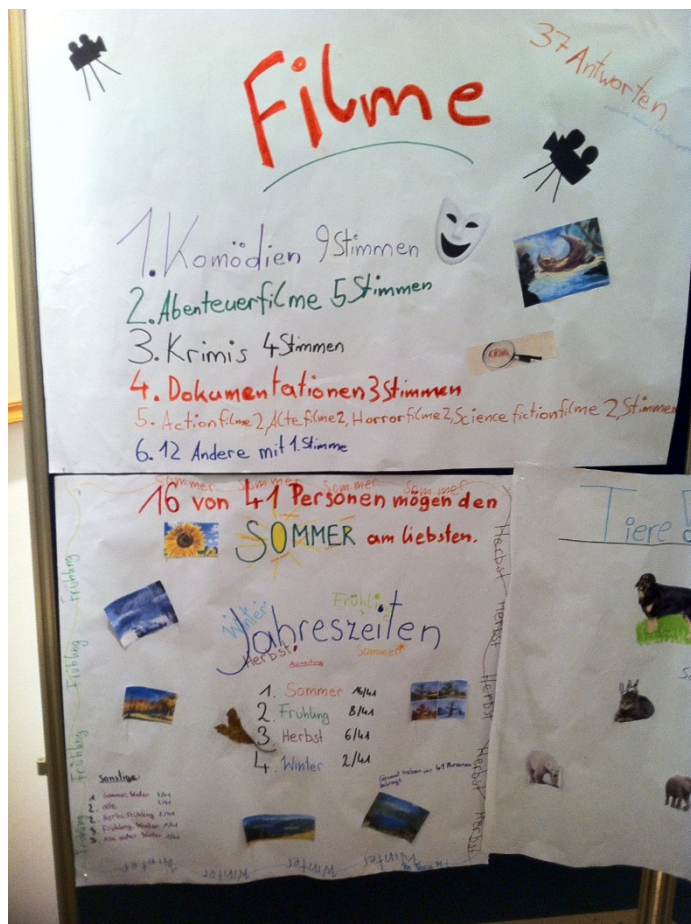 37 Antworten
Filme
1. Komödien 9 Stimmen
2. Abenteuerfilme 5 Stimmen
3. Krimis 4 Stimmen
KRIMI
4. Dokumentationen 3 Stimmen
5. Actionfilme 2, Alte filme 2, Horrorfilme 2, Science fictionfilme 2, Stimmen
6. 12 Andere mit 1. Stimme
Sommer Sommer Sommer Sommer
16 von 41 Personen mögen den
SOMMER am liebsten.
Tiere
Frühling Frühling Frühling Frühling Frühling
Herbst Herbst Herbst Herbst Herbst
Winter
Frühling
Jahreszeiten
Herbst
Sommer
1. Sommer 16/41
2. Frühling 8/41
3 Herbst 6/41
4. Winter 2/41
Sonstige
1. Sommer, Winter
2. alle 2/41
2. Herbst, Frühling
3. Frühling, Winter
Gesamt haben wir 41 Personen
befragt
Winter Winter Winter Winter